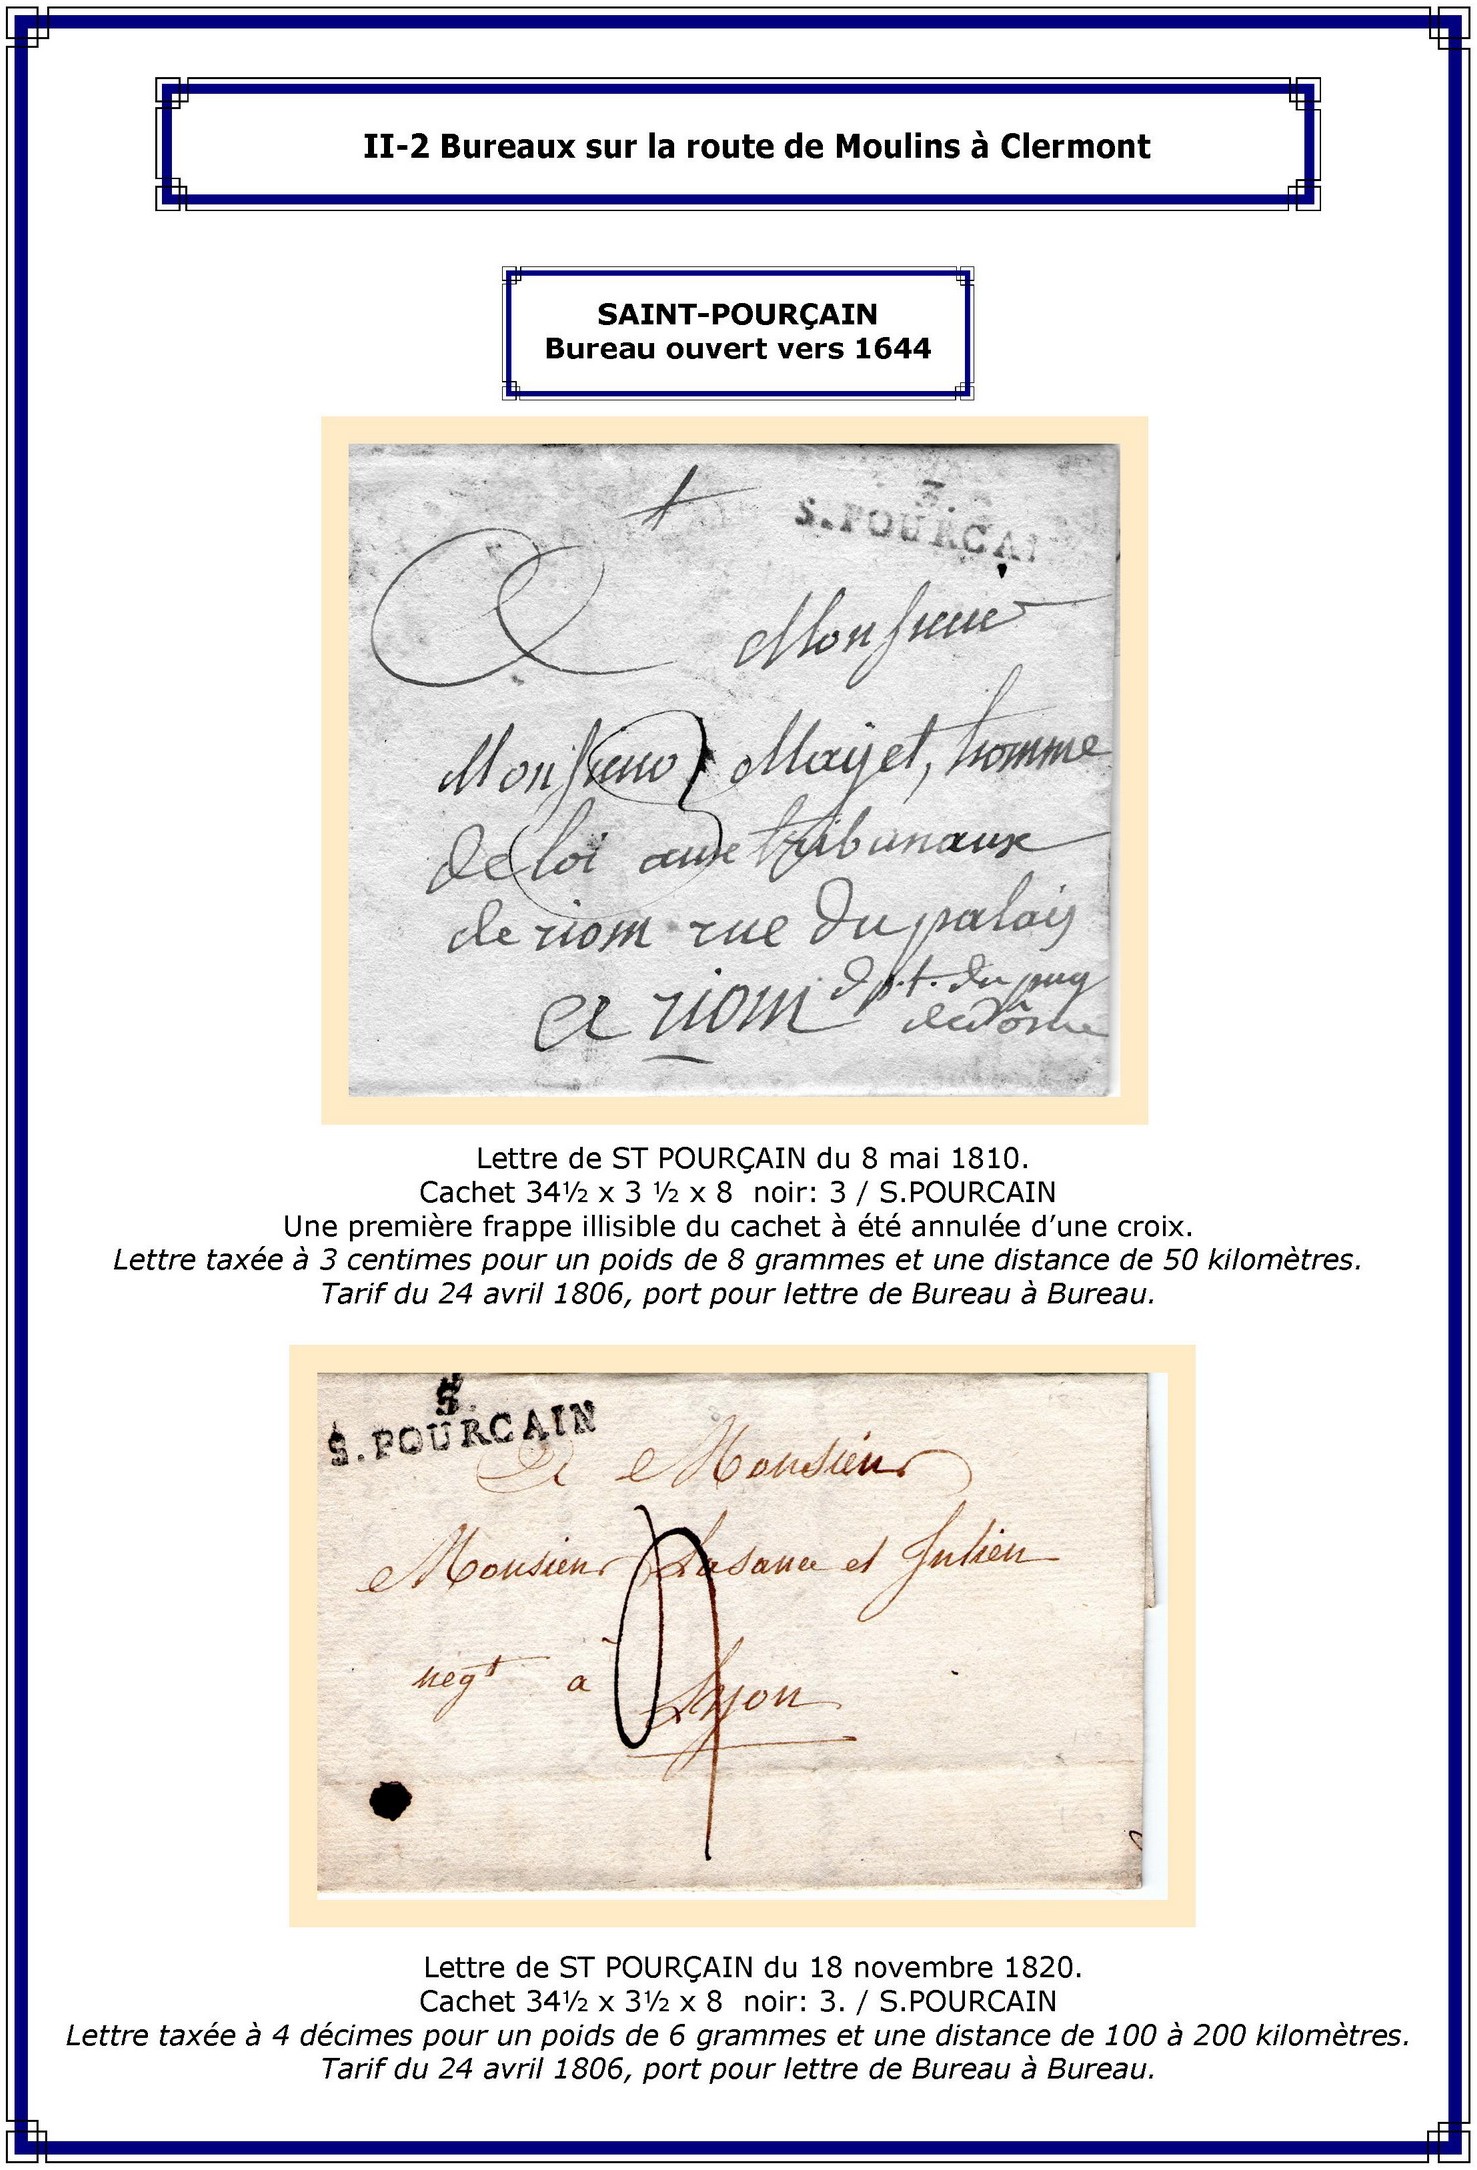 II-2 Bureaux sur la route de Moulins à Clermont
SAINT-POURÇAIN
Bureau ouvert vers 1644
3.
S.POURCAI
Monsieur
Monsieur Mayet, homme
de loi aux tribunaux
de riom rue du palais
a riom dpt. du puy
dedôme
Lettre de ST POURÇAIN du 8 mai 1810.
Cachet 34½ x 3 ½ x 8 noir: 3 / S.POURCAIN
Une première frappe illisible du cachet à été annulée d’une croix.
Lettre taxée à 3 centimes pour un poids de 8 grammes et une distance de 50 kilomètres.
Tarif du 24 avril 1806, port pour lettre de Bureau à Bureau.
S.POURCAIN
A Monsieur
Monsieur et Julien
négt à Lyon
Lettre de ST POURÇAIN du 18 novembre 1820.
Cachet 34½ x 3½ x 8 noir: 3. / S.POURCAIN
Lettre taxée à 4 décimes pour un poids de 6 grammes et une distance de 100 à 200 kilomètres.
Tarif du 24 avril 1806, port pour lettre de Bureau à Bureau.